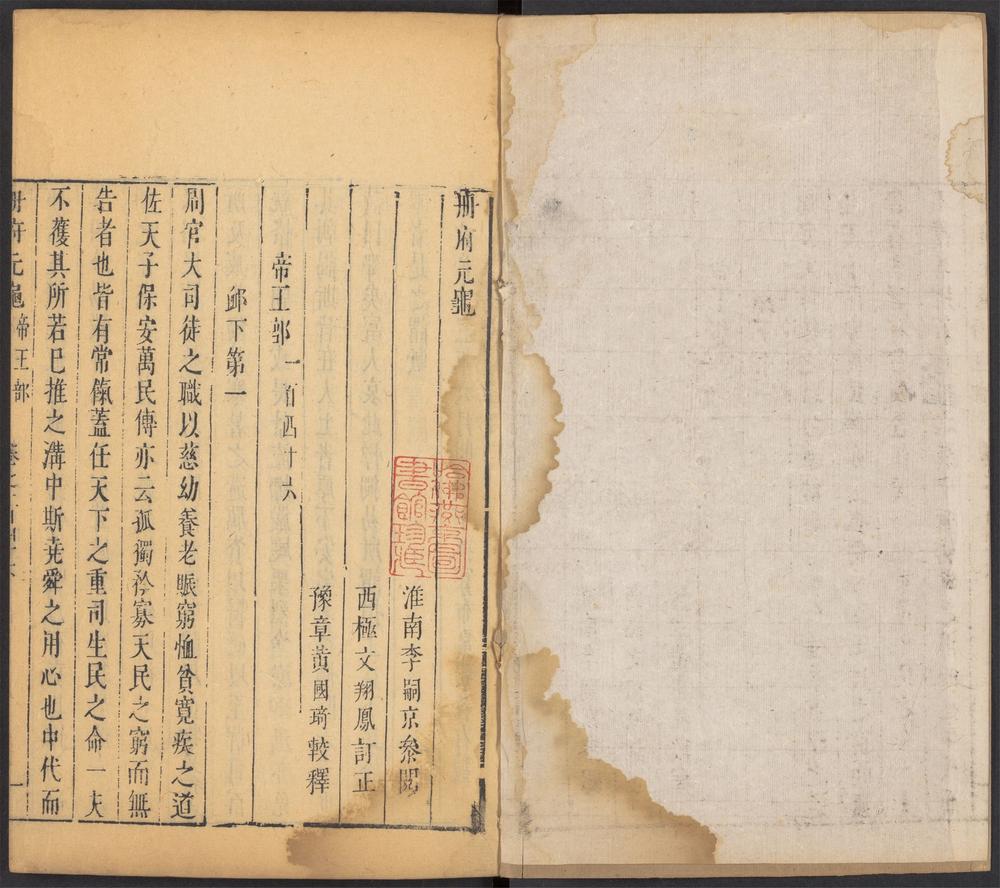 冊府元龜
淮南李嗣京叅閱
西極文翔鳳訂正
豫章黃國琦較釋
帝王部一百四十六
䘏下第一
周官大司徒之職以慈幼養老賑窮恤貧寛疾之道
佐天子保安萬民傳亦云孤獨矜寡天民之窮而無
告者也皆有常餼蓋任天下之重司生民之命一夫
不獲其所若已推之溝中斯堯舜之用心也中代而
冊府元龜帝王部
一
哈佛燕京圖書館珍藏